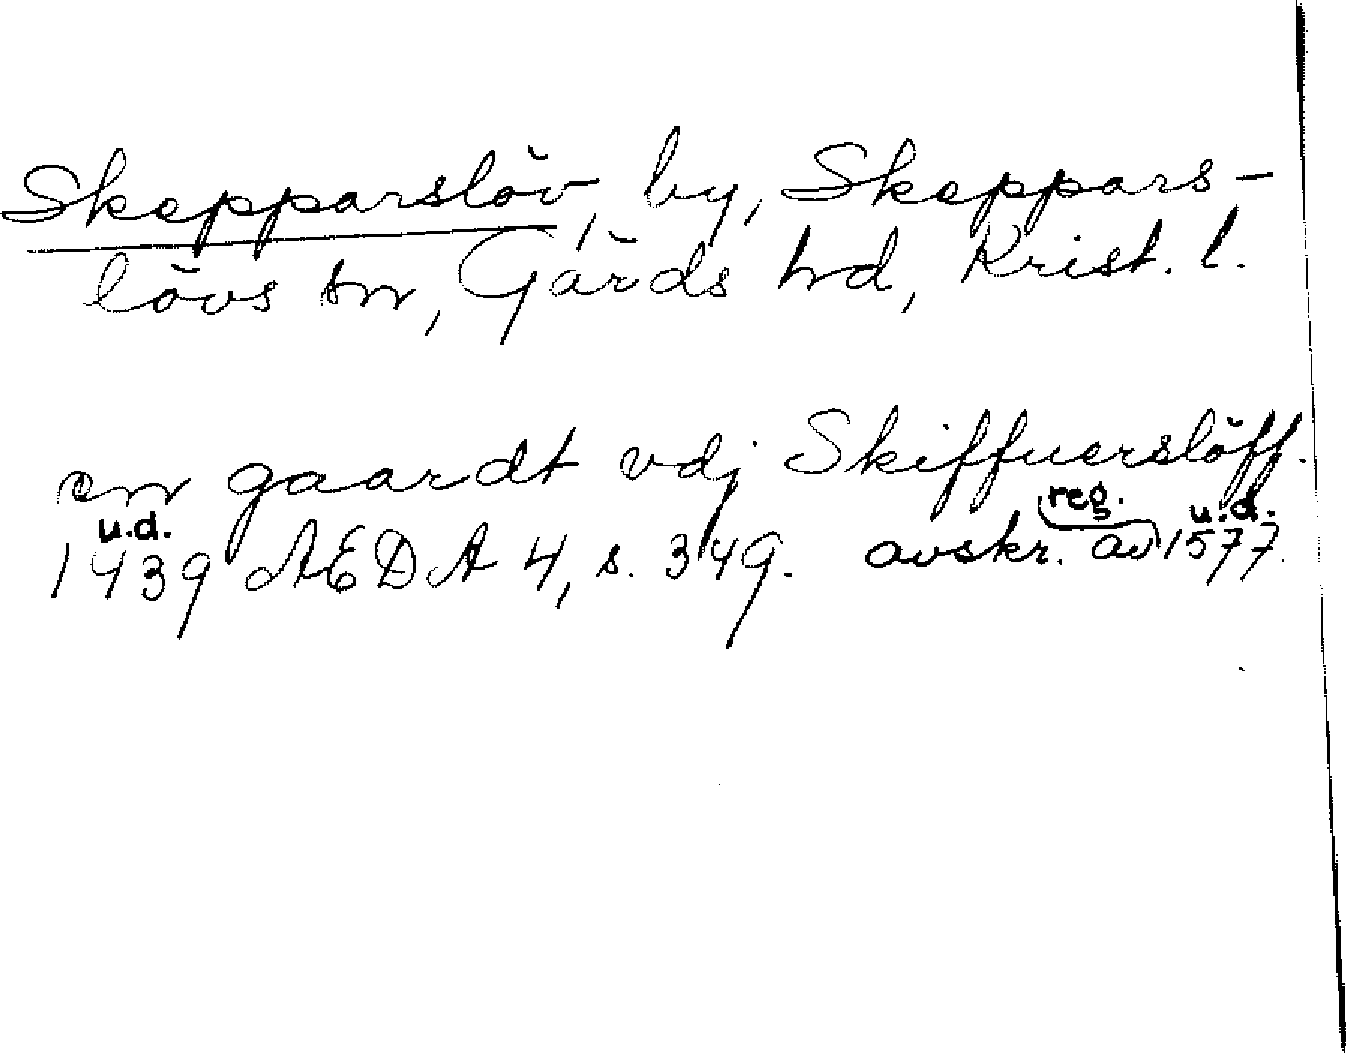 Skepparslöv, by, Skeppars-
lövs sn, Gärds hd, Krist. l.
en gaardt vdj Skiffuerslöff.
u.d. reg. u.d.
1439 ÆDA 4, s. 349. avskr. av 1577.